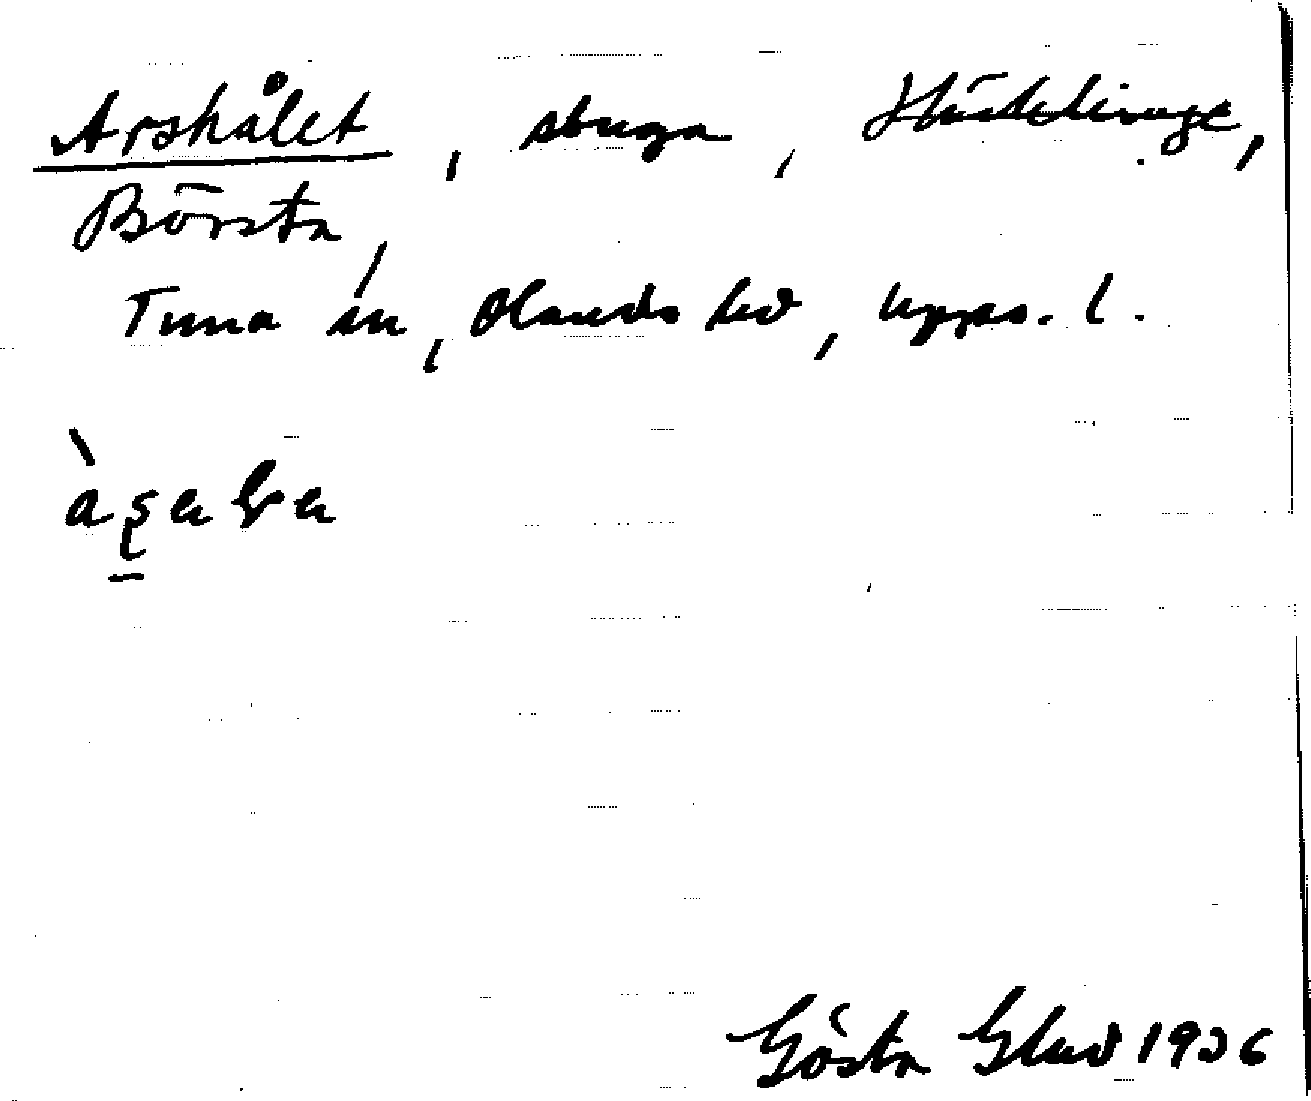 Arshålet, stuga, Häckelinge,
Börsta,
Tuna sn, Olands hd, Upps. l.
Gösta Glad 1936